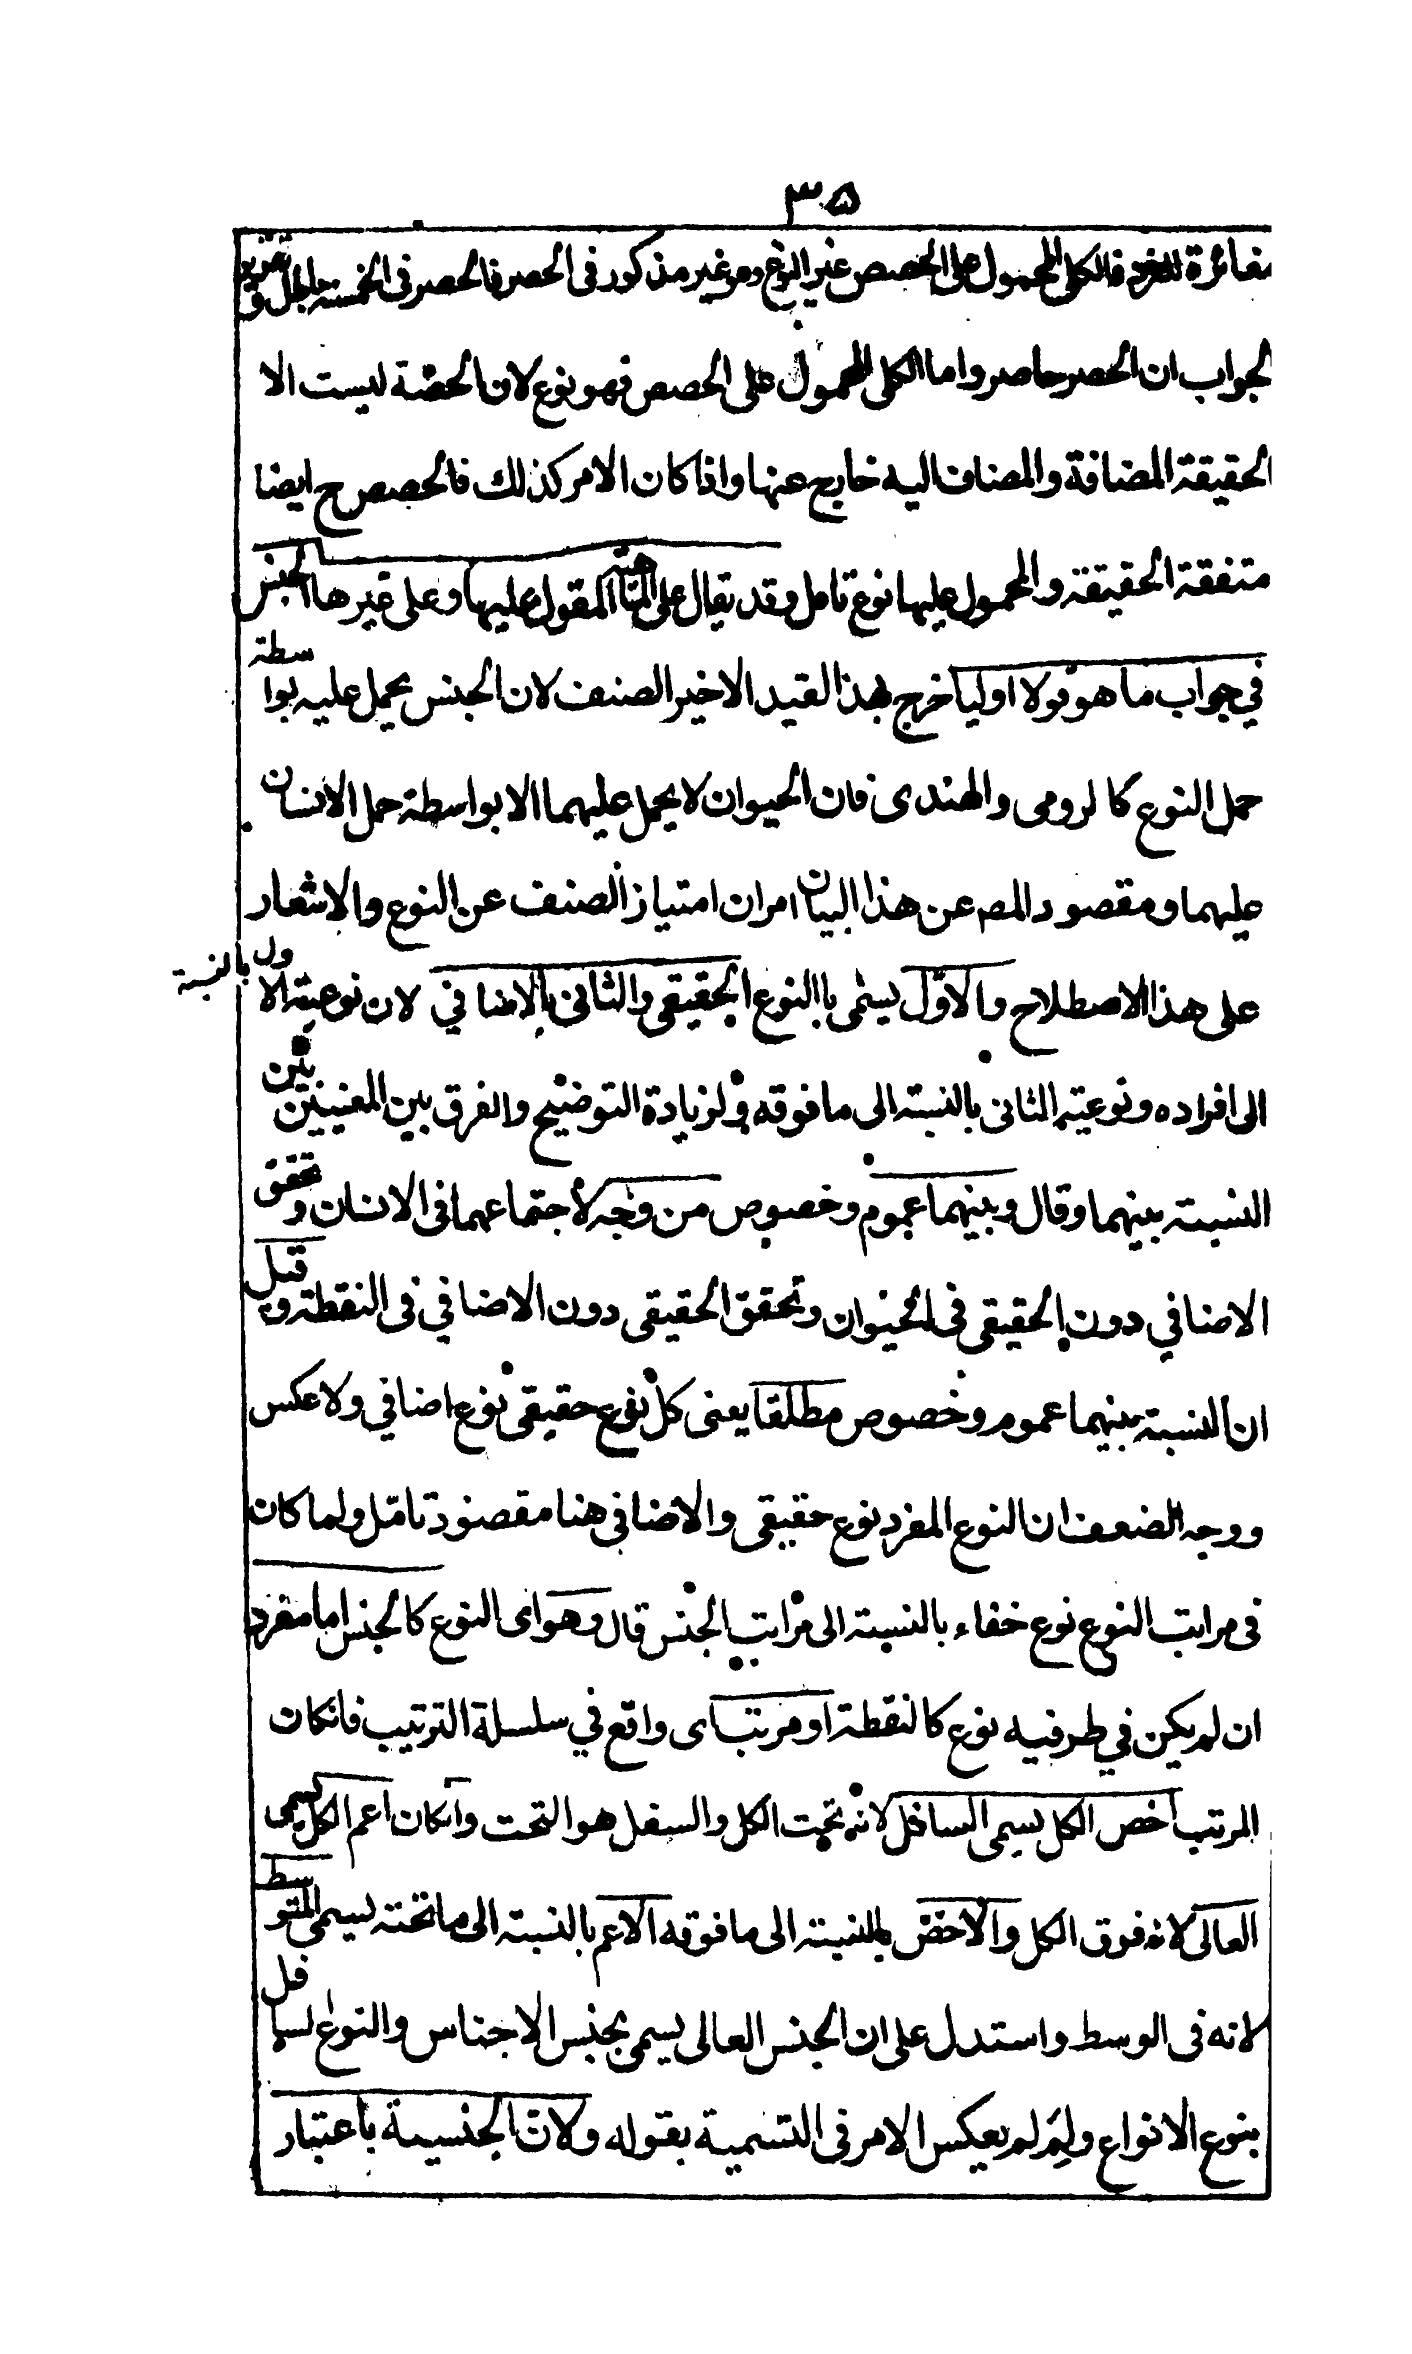 ٣٥
مغائرة للفرد فالكلى المحمول على الحصص غير النوع وهو غير مذكور فى الحصر فالحصر فى الخمسة باطل وتقرير
الجواب ان الحصر حاصر واما الكلى المحمول على الحصص فهو نوع لان الحصّة ليست الا
الحقيقة المضافة والمضاف اليه خارج عنها واذا كان الامر كذلك فالحصص ح ايضا
متفقة الحقيقة والمحمول عليها نوع تامل وقد يقال على الماهية المقول عليها وعلى غيرها الجنس
في جواب ما هو قولا اوليا خرج بهذا القيد الاخير الصنف لان الجنس يحمل عليه بواسطة
حمل النوع كالرومى والهندى فان الحيوان لا يحمل عليهما الا بواسطة حمل الانسان
عليهما ومقصود المص عن هذا البيان امران امتياز الصنف عن النوع والاشعار
على هذا الاصطلاح والاوّل يسمى باالنوع الحقيقى والثانى بالاضافي لان نوعية الاول بالنسبة
الى افراده ونوعية الثانى بالنسبة الى ما فوقه ولزيادة التوضيح والفرق بين المعنيين بين
النسبة بينهما وقال وبينهما عموم وخصوص من وجه لاجتماعهما فى الانسان وتحقق
الاضافي دون الحقيقى فى الحيوان وتحقق الحقيقى دون الاضافي فى النقطة وقيل
ان النسبة بينهما عموم وخصوص مطلقا يعنى كل نوع حقيقى نوع اضافي ولا عكس
ووجه الضعف ان النوع المفرد نوع حقيقى والاضافى هنا مقصود تامّل ولما كان
فى مراتب النوع نوع خفاء بالنسبة الى مراتب الجنس قال وهو اى النوع كالجنس اما مفرد
ان لم يكن في طرفيه نوع كالنقطة او مرتب اى واقع في سلسلة الترتيب فانكان
المرتب اخص الكل يسمى السافل لانه تحت الكل والسفل هو التحت وانكان اعم الكل يسمى
العالى لانه فوق الكل والاخص بالنسبة الى ما فوقه الاعم بالنسبة الى ما تحته يسمى المتوسط
لانه فى الوسط واستدل على ان الجنس العالى يسمى بجنس الاجناس والنوع السافل
بنوع الانواع ولِمَ لم يعكس الامر فى التسمية بقوله ولانّ الجنسية باعتبار